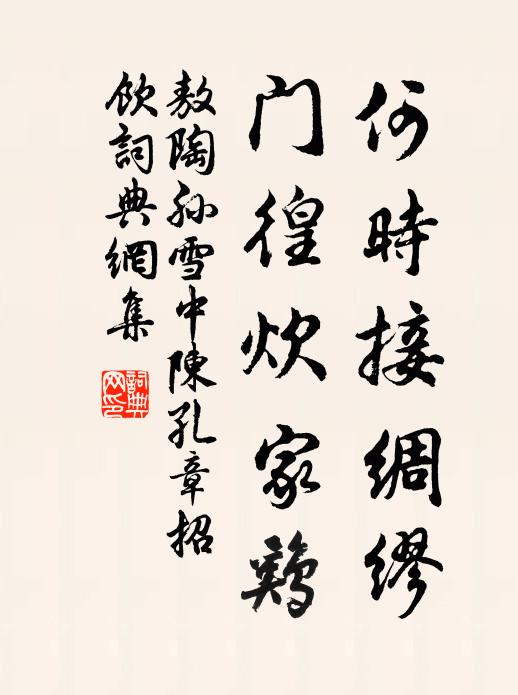 何時接綢繆
門徨炊家鷄
敖陶孙雪中陳孔章招
飲詞典網集
詞典
网印